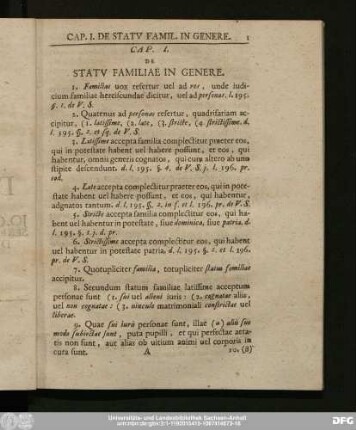 CAP. I. DE STATV FAMIL. IN GENERE. 1
CAP. I.
DE
STATV FAMILIAE IN GENERE.
1. Familiae uox refertur uel ad res, unde iudi-
cium familiae herciscundae dicitur, uel ad personas. l. 195.
§. 1. de V. S.
2. Quatenus ad personas refertur, quadrifariam ac-
cipitur, (1. latissime, (2. late, (3. stricte, (4. strictissime. d.
l. 195. §. 2. et sq. de V. S.
3. Latissime accepta familia complectitur praeter eos,
qui in potestate habent uel habere possunt, et eos, qui
habentur, omnis generis cognatos, qui cum altero ab uno
stipite descendunt. d. l. 195. §. 4. de V. S. j. l. 196. pr.
eod.
4. Late accepta complectitur praeter eos, qui in pote-
state habent uel habere possunt, et eos, qui habentur,
adgnatos tantum. d. l. 195. §. 2. in f. et l. 196. pr. de V. S.
5. Stricte accepta familia complectitur eos, qui ha-
bent uel habentur in potestate, siue dominica, siue patria. d.
l. 195. §. 2. j. d. pr.
6. Strictissime accepta complectitur eos, qui habent
uel habentur in potestate patria. d. l. 195. §. 2. et l. 196.
pr. de V. S.
7. Quotupliciter familia, totupliciter status familiae
accipitur.
8. Secundum statum familiae latissime acceptum
personae sunt (1. sui uel alieni iuris: (2. cognatae aliis,
uel non cognatae: (3. uinculo matrimoniali constrictae uel
liberae.
9. Quae sui iuris personae sunt, illae (a) alii suo
modo subiectae sunt, puta pupilli, et qui perfectae aeta-
tis non sunt, aut alias ob uitium animi uel corporis in
cura sunt. A 10. (b)
Universitäts- und Landesbibliothek Sachsen-Anhalt